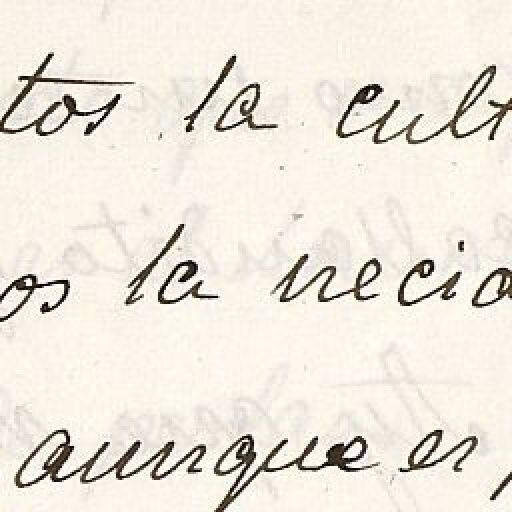 tos la cult
os la necia
aunque en